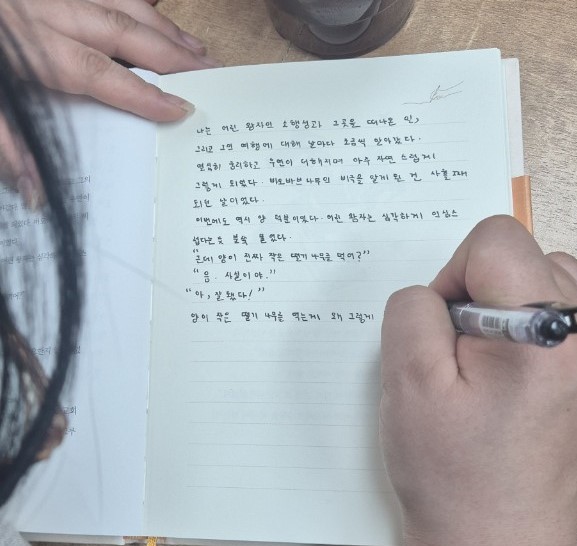 나는 어린 왕자의 소행성과 그곳을 떠나온 일,
그리고 그의 여행에 대해 날마다 조금씩 알아갔다.
열심히 궁리하고 우연이 더해지며 아주 자연 스럽게
그렇게 되었다. 바오바브나무의 비극을 알게 된 건 사흘째
되던 날이었다.
이번에도 역시 양 덕분이었다. 어린 왕자는 심각하게 의심스
럽다는 듯 불쑥 물었다.
"근데 양이 진짜 작은 떨기 나무를 먹어?"
"응. 사실이야."
"아, 잘 됐다!"
양이 작은 떨기 나무를 먹는게 왜 그렇게